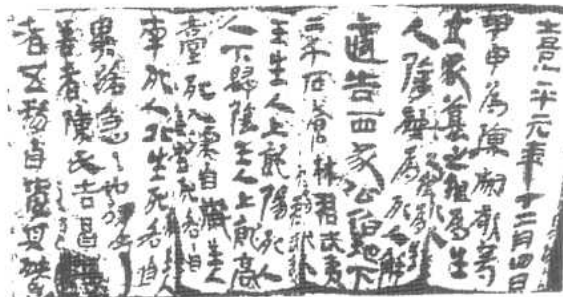 熹平元年十二月四日
甲申為陳叔敬等
立冢墓之根為生
人除殃為死人解
適告西冢公伯地下
二千石蒼林君武夷
王生人上就陽死人
下歸陰生人上就高
臺死人深自藏生人
南死人北生死各自
異路急〻如律令
善者陳氏吉昌惡
者五精自受其殃